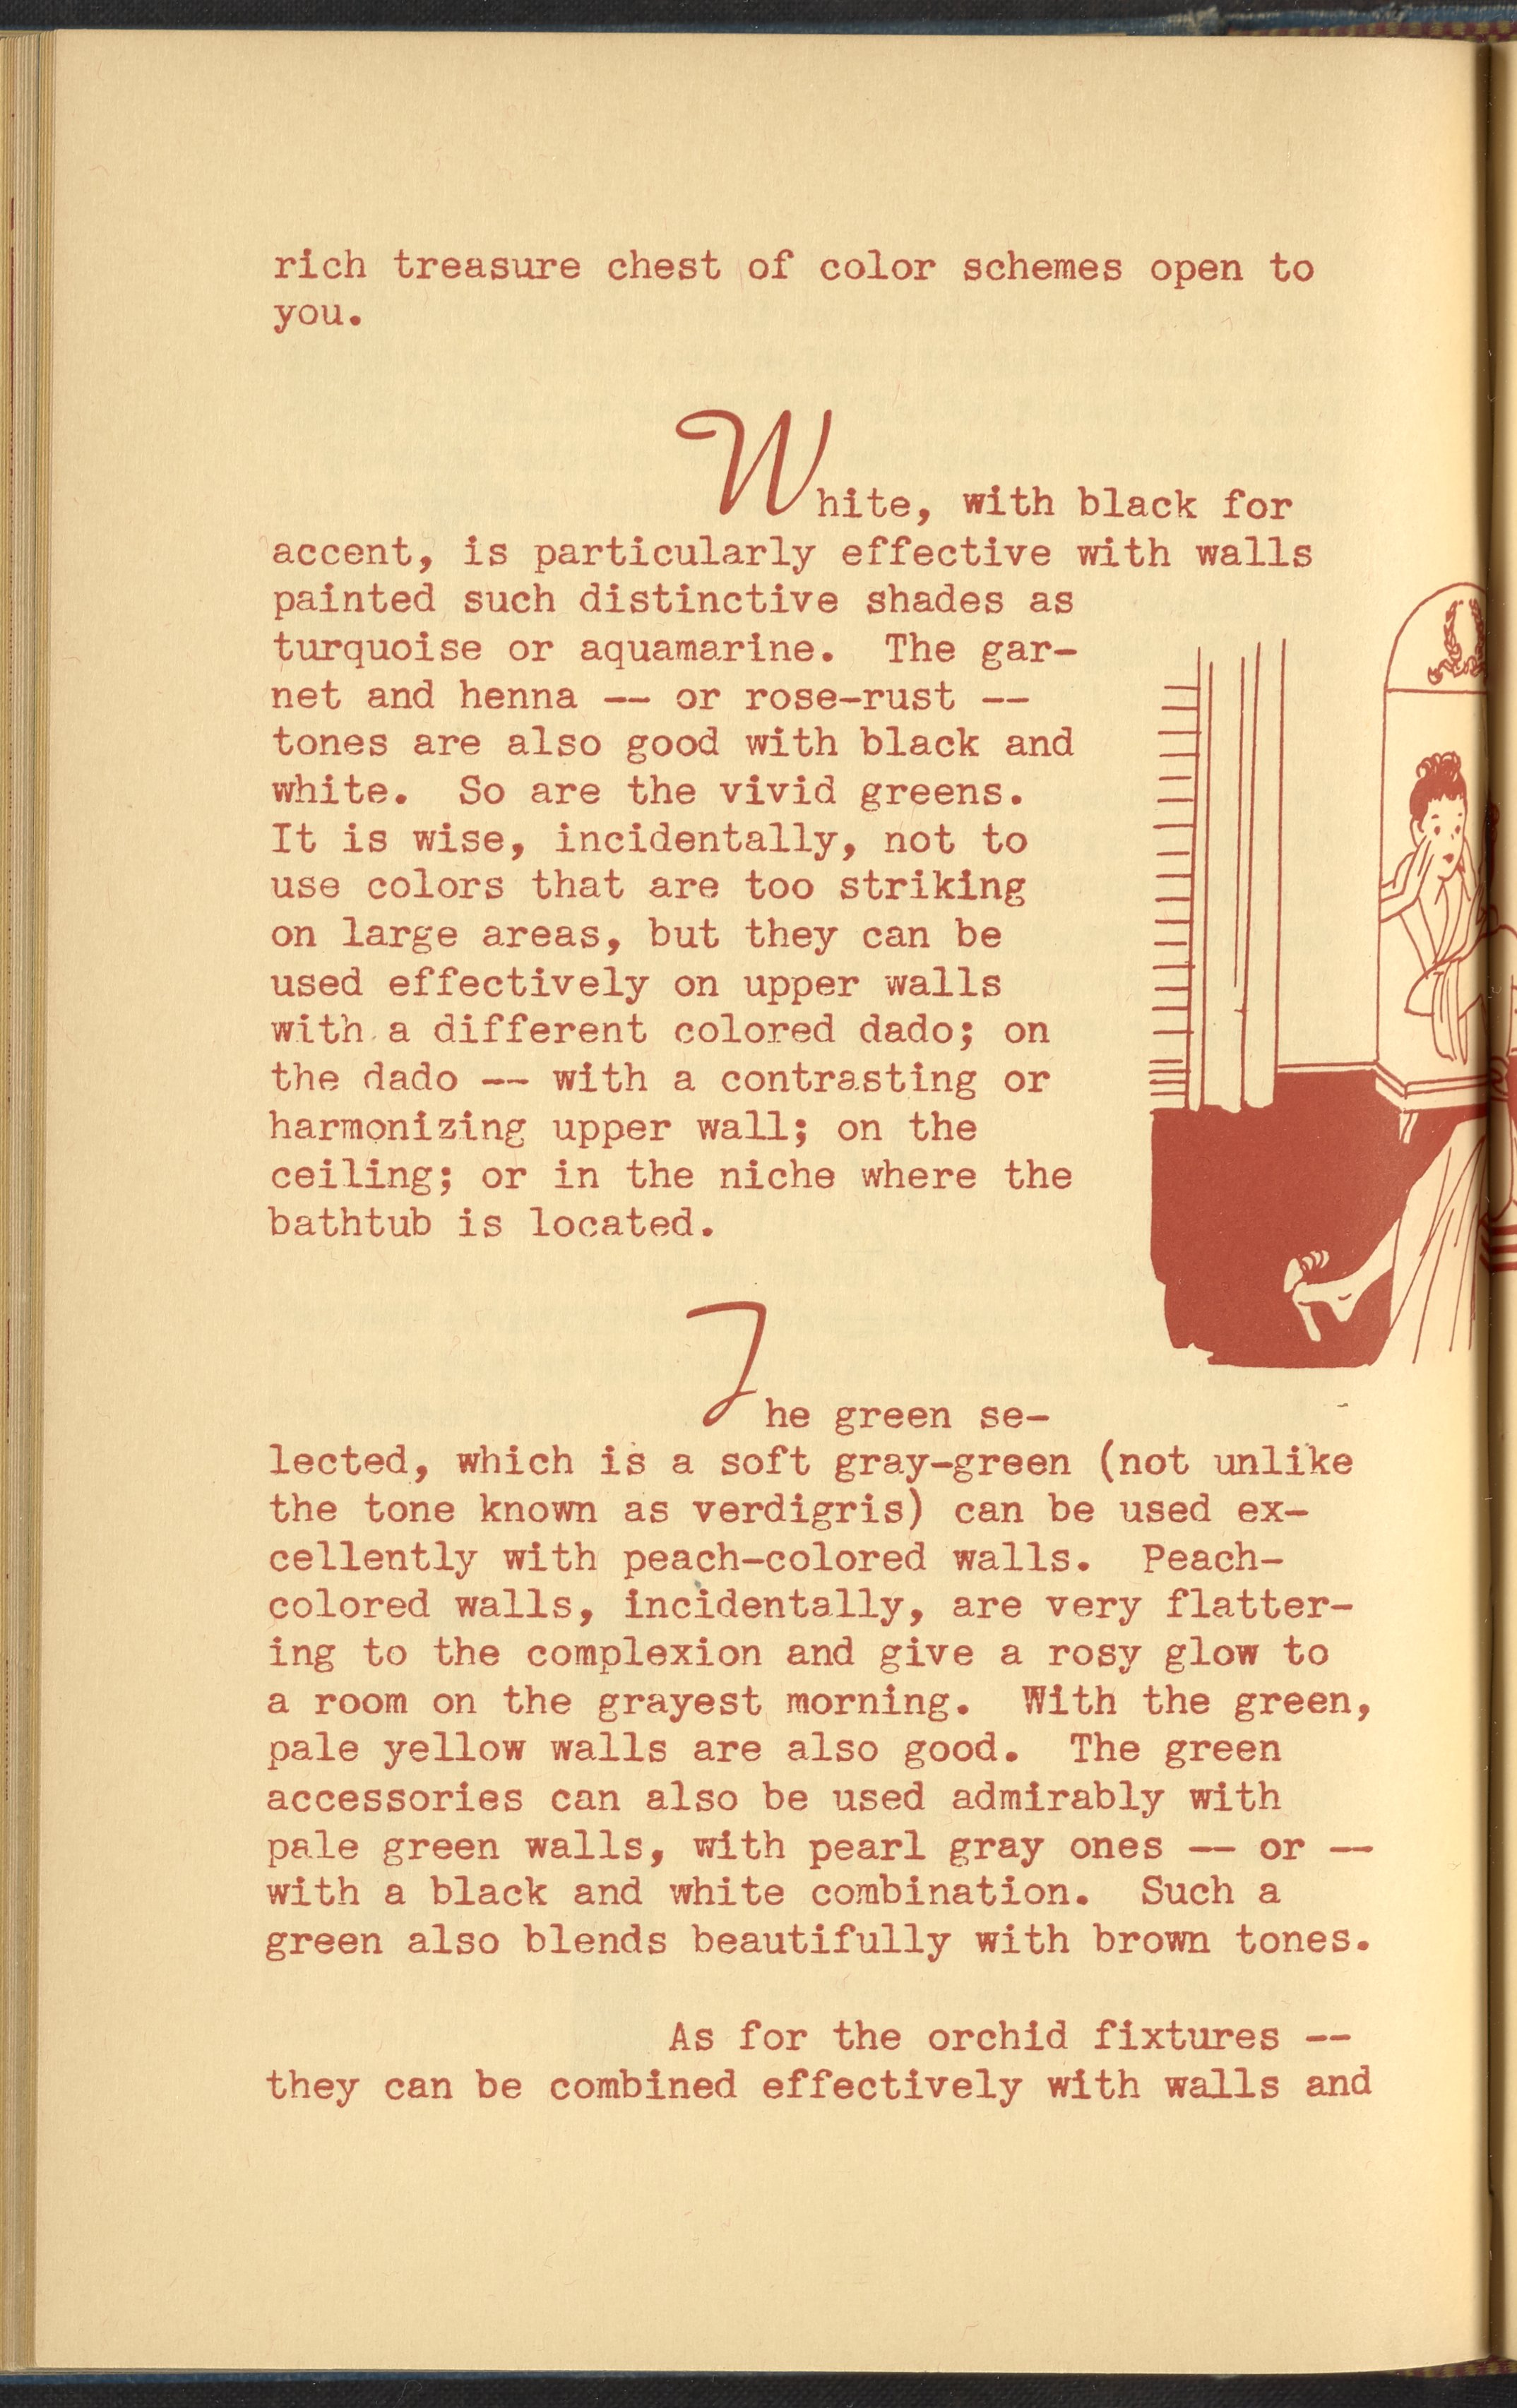 rich treasure chest of color schemes open to
you.
White, with black for
accent, is particularly effective with walls
painted such distinctive shades as
turquoise or aquamarine. The gar-
net and henna -- or rose-rust --
tones are also good with black and
white. So are the vivid greens.
It is wise, incidentally, not to
use colors that are too striking
on large areas, but they can be
used effectively on upper walls
with a different colored dado; on
the dado -- with a contrasting or
harmonizing upper wall; on the
ceiling; or in the niche where the
bathtub is located.
The green se-
lected, which is a soft gray-green (not unlike
the tone known as verdigris) can be used ex-
cellently with peach-colored walls. Peach-
colored walls, incidentally, are very flatter-
ing to the complexion and give a rosy glow to
a room on the grayest morning. With the green,
pale yellow walls are also good. The green
accessories can also be used admirably with
pale green walls, with pearl gray ones -- or --
with a black and white combination. Such a
green also blends beautifully with brown tones.
As for the orchid fixtures --
they can be combined effectively with walls and